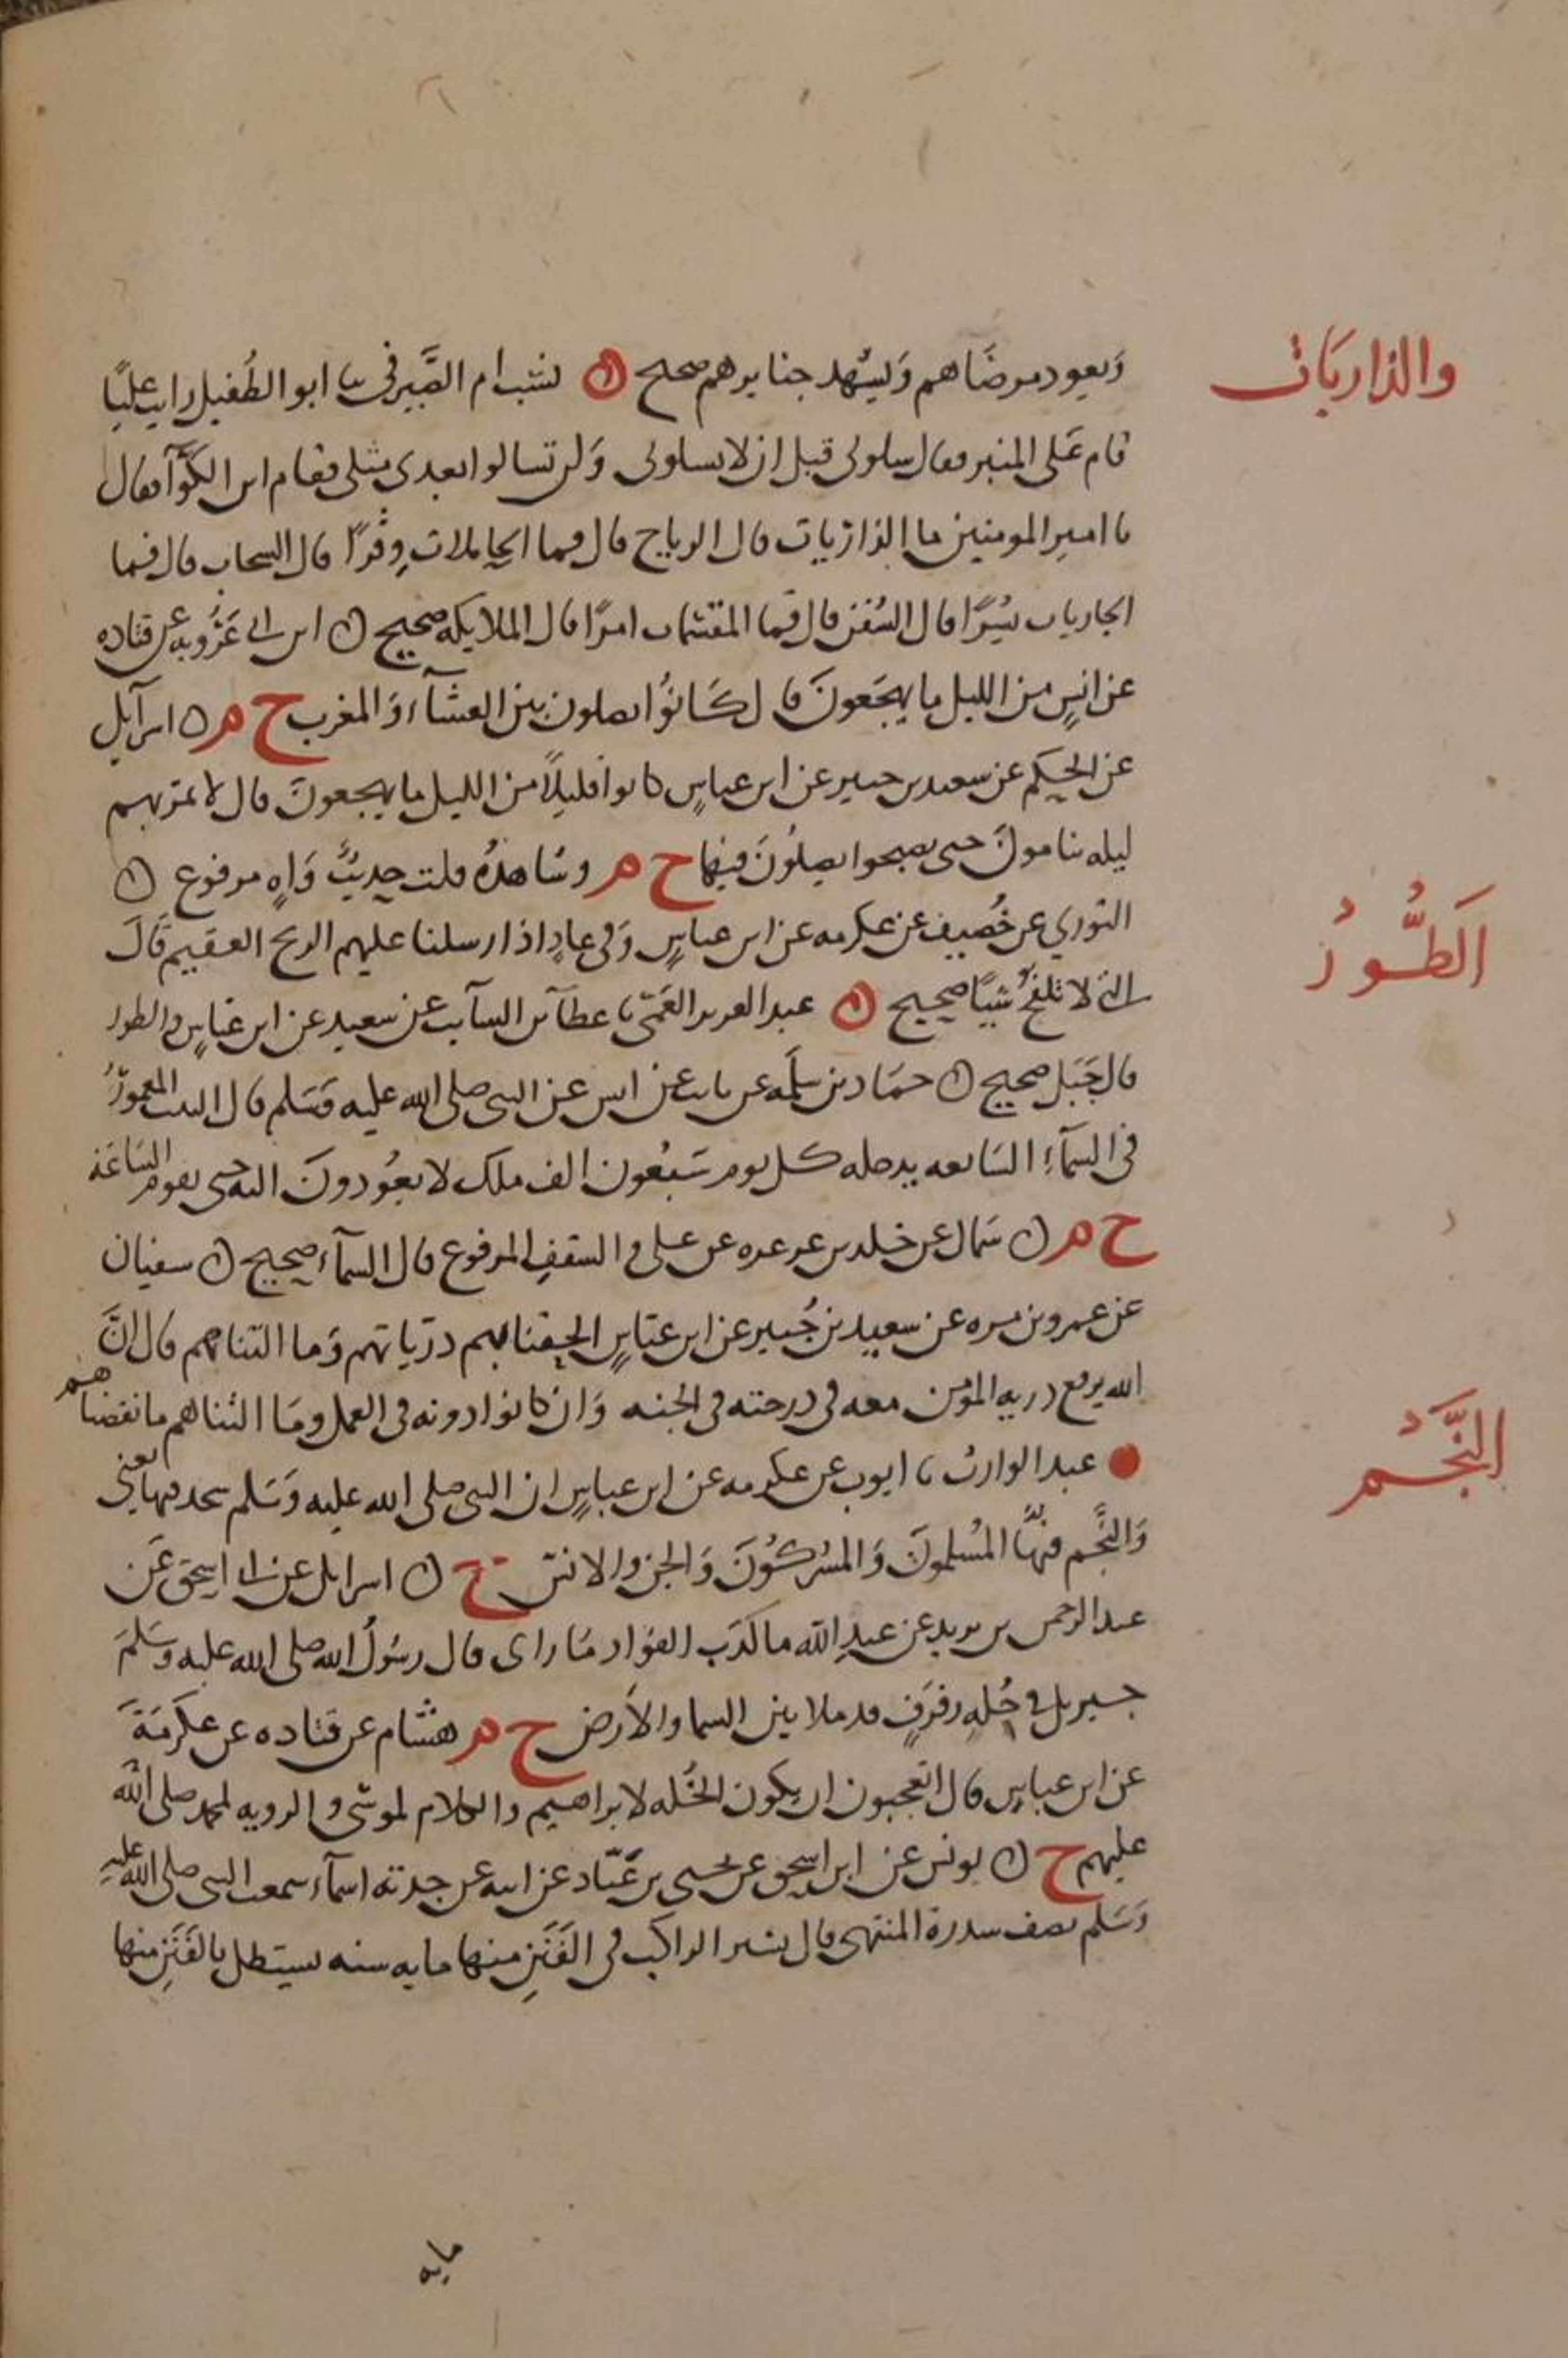 والذاريات
ويعود مرضاهم ويشهد جنايزهم صحيح ن بسام الصيرفي نا ابو الطفيل رايت عليا
قام على المنبر فقال سلوني قبل ان لا تسلوني ولن تسالوا بعدي مثلي فقام ابن الكوآ فقال
يا امير المومنين ما الذاريات قال الرياح قال فما الحاملات وقرا قال السحاب قال فما
الجاريات يسرا قال السفن قال فما المقسمات امرا قال الملايكه صحيح ن ابن ابي عروبه عن قتاده
عن انس من الليل ما يهجعون قال كانوا يصلون بين العشآء والمغرب خ م ن اسرآيل
عن الحكم عن سعيد بن جبير عن ابن عباس كانوا قليلا من الليل ما يهجعون قال لا تمر بهم
ليله ينامون حتى يصبحوا يصلون فيها خ م وشاهده قلت حديث واه مرفوع ن
الطور
الثوري عن خصيف عن عكرمه عن ابن عباس وفي عاد اذ ارسلنا عليهم الريح العقيم قال
التي لا تلقح شيا صحيح ن عبد العزيز العمي نا عطآ بن السآيب عن سعيد عن ابن عباس والطور
قال جبل صحيح ن حماد بن سلمه عن ثابت عن انس عن النبي صلى الله عليه وسلم قال البيت المعمور
في السمآء السابعه يدخله كل يوم سبعون الف ملك لا يعودون اليه حتى تقوم الساعة
خ م ن سماك عن خلد بن عرعره عن علي والسقف المرفوع قال السمآء صحيح ن سفيان
عن عمرو بن مره عن سعيد بن جبير عن ابن عباس الحقنا بهم ذرياتهم وما التناهم قال ان
الله يرفع ذريه المومن معه في درجته في الجنه وان كانوا دونه في العمل وما التناهم ما نقصناهم
النجم
عبد الوارث نا ايوب عن عكرمه عن ابن عباس ان النبي صلى الله عليه وسلم سجد فيها يعني
والنجم فيها المسلمون والمشركون والجن والانس خ ن اسرايل عن ابي اسحق عن
عبد الرحمن بن يزيد عن عبد الله ما كذب الفواد ما راى قال رسول الله صلى الله عليه وسلم
جبريل في حله رفرف قد ملا بين السما والارض خ م هشام عن قتاده عن عكرمة
عن ابن عباس قال اتعجبون ان يكون الخله لابراهيم والكلام لموسى والرويه لمحمد صلى الله
عليهم خ ن يونس عن ابن اسحق عن يحيى بن عباد عن ابيه عن جدته اسمآء سمعت النبي صلى الله عليه
وسلم يصف سدرة المنتهى قال يسير الراكب في الفنن منها مايه سنه يستظل بالفنن منها
مايه